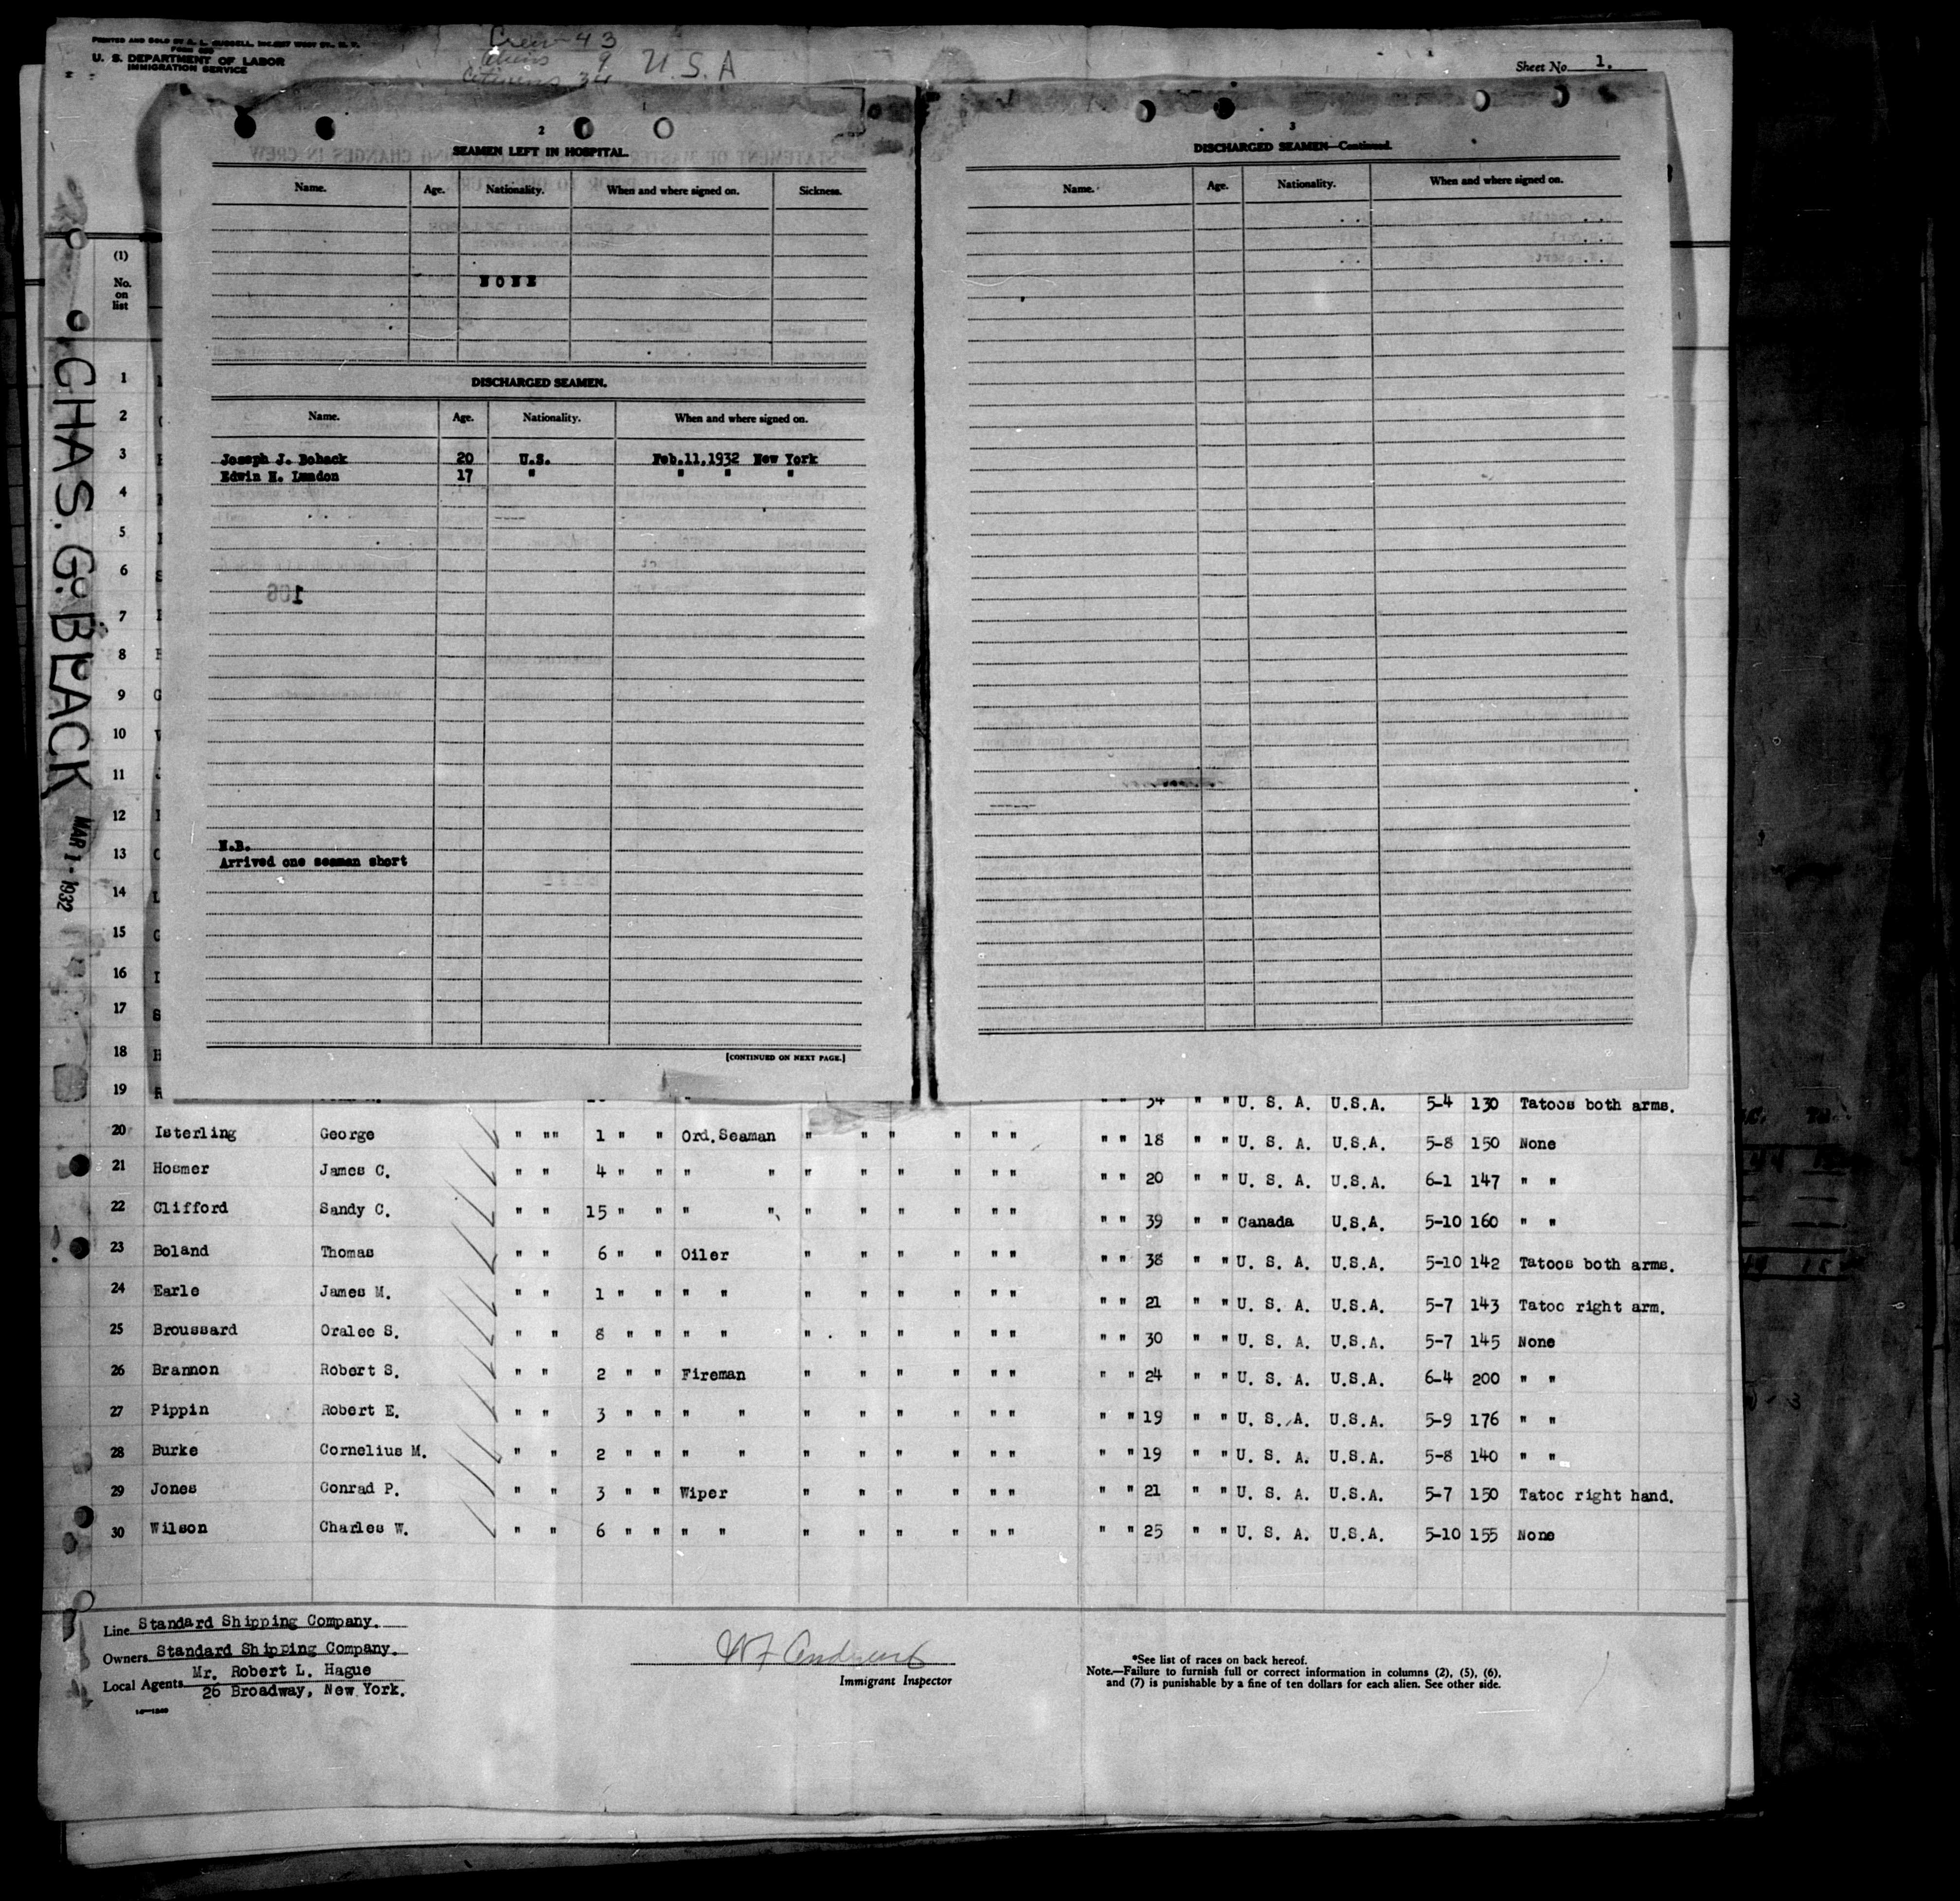 U. S. DEPARTMENT OF LABOR
IMMIGRATION SERVICE
Crew 43
Aliens 9
Citizens 34
U.S.A
Sheet No. 1.
CHAS. G. BLACK
MAR 1 - 1932
2
SEAMEN LEFT IN HOSPITAL.
Name. Age. Nationality. When and where signed on. Sickness.
NONE
DISCHARGED SEAMEN.
Name. Age. Nationality. When and where signed on.
Joseph J. Bohack 20 U.S. Feb.11,1932 New York
Edwin H. Lundon 17 " " " "
N.B.
Arrived one seaman short
[CONTINUED ON NEXT PAGE.]
3
DISCHARGED SEAMEN—Continued.
Name. Age. Nationality. When and where signed on.
(1)
No.
on
list
1
2
3
4
5
6
7
8
9
10
11
12
13
14
15
16
17
18
19 " " 34 " " U. S. A. U.S.A. 5-4 130 Tatoos both arms.
20 Isterling George " "" 1 " " Ord.Seaman " " " " " " " " 18 " " U. S. A. U.S.A. 5-8 150 None
21 Hosmer James C. " " 4 " " " " " " " " " " " " 20 " " U. S. A. U.S.A. 6-1 147 " "
22 Clifford Sandy C. " " 15 " " " " " " " " " " " " 39 " " Canada U.S.A. 5-10 160 " "
23 Boland Thomas " " 6 " " Oiler " " " " " " " " 38 " " U. S. A. U.S.A. 5-10 142 Tatoos both arms.
24 Earle James M. " " 1 " " " " " " " " " " " " 21 " " U. S. A. U.S.A. 5-7 143 Tatoo right arm.
25 Broussard Oralee S. " " 8 " " " " " " " " " " " " 30 " " U. S. A. U.S.A. 5-7 145 None
26 Brannon Robert S. " " 2 " " Fireman " " " " " " " " 24 " " U. S. A. U.S.A. 6-4 200 " "
27 Pippin Robert E. " " 3 " " " " " " " " " " " " 19 " " U. S. A. U.S.A. 5-9 176 " "
28 Burke Cornelius M. " " 2 " " " " " " " " " " " " 19 " " U. S. A. U.S.A. 5-8 140 " "
29 Jones Conrad P. " " 3 " " Wiper " " " " " " " " 21 " " U. S. A. U.S.A. 5-7 150 Tatoo right hand.
30 Wilson Charles W. " " 6 " " " " " " " " " " " " 25 " " U. S. A. U.S.A. 5-10 155 None
Line Standard Shipping Company.
Owners Standard Shipping Company.
Mr. Robert L. Hague
Local Agents 26 Broadway, New York.
Andrews
Immigrant Inspector
*See list of races on back hereof.
Note.—Failure to furnish full or correct information in columns (2), (5), (6),
and (7) is punishable by a fine of ten dollars for each alien. See other side.